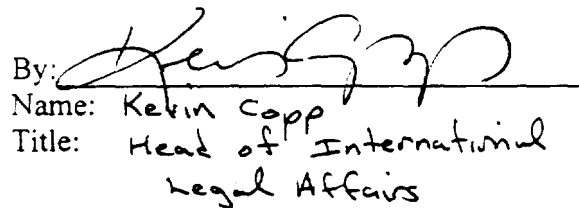 By: Kevin Copp
Name: Kevin Copp
Title: Head of International
Legal Affairs